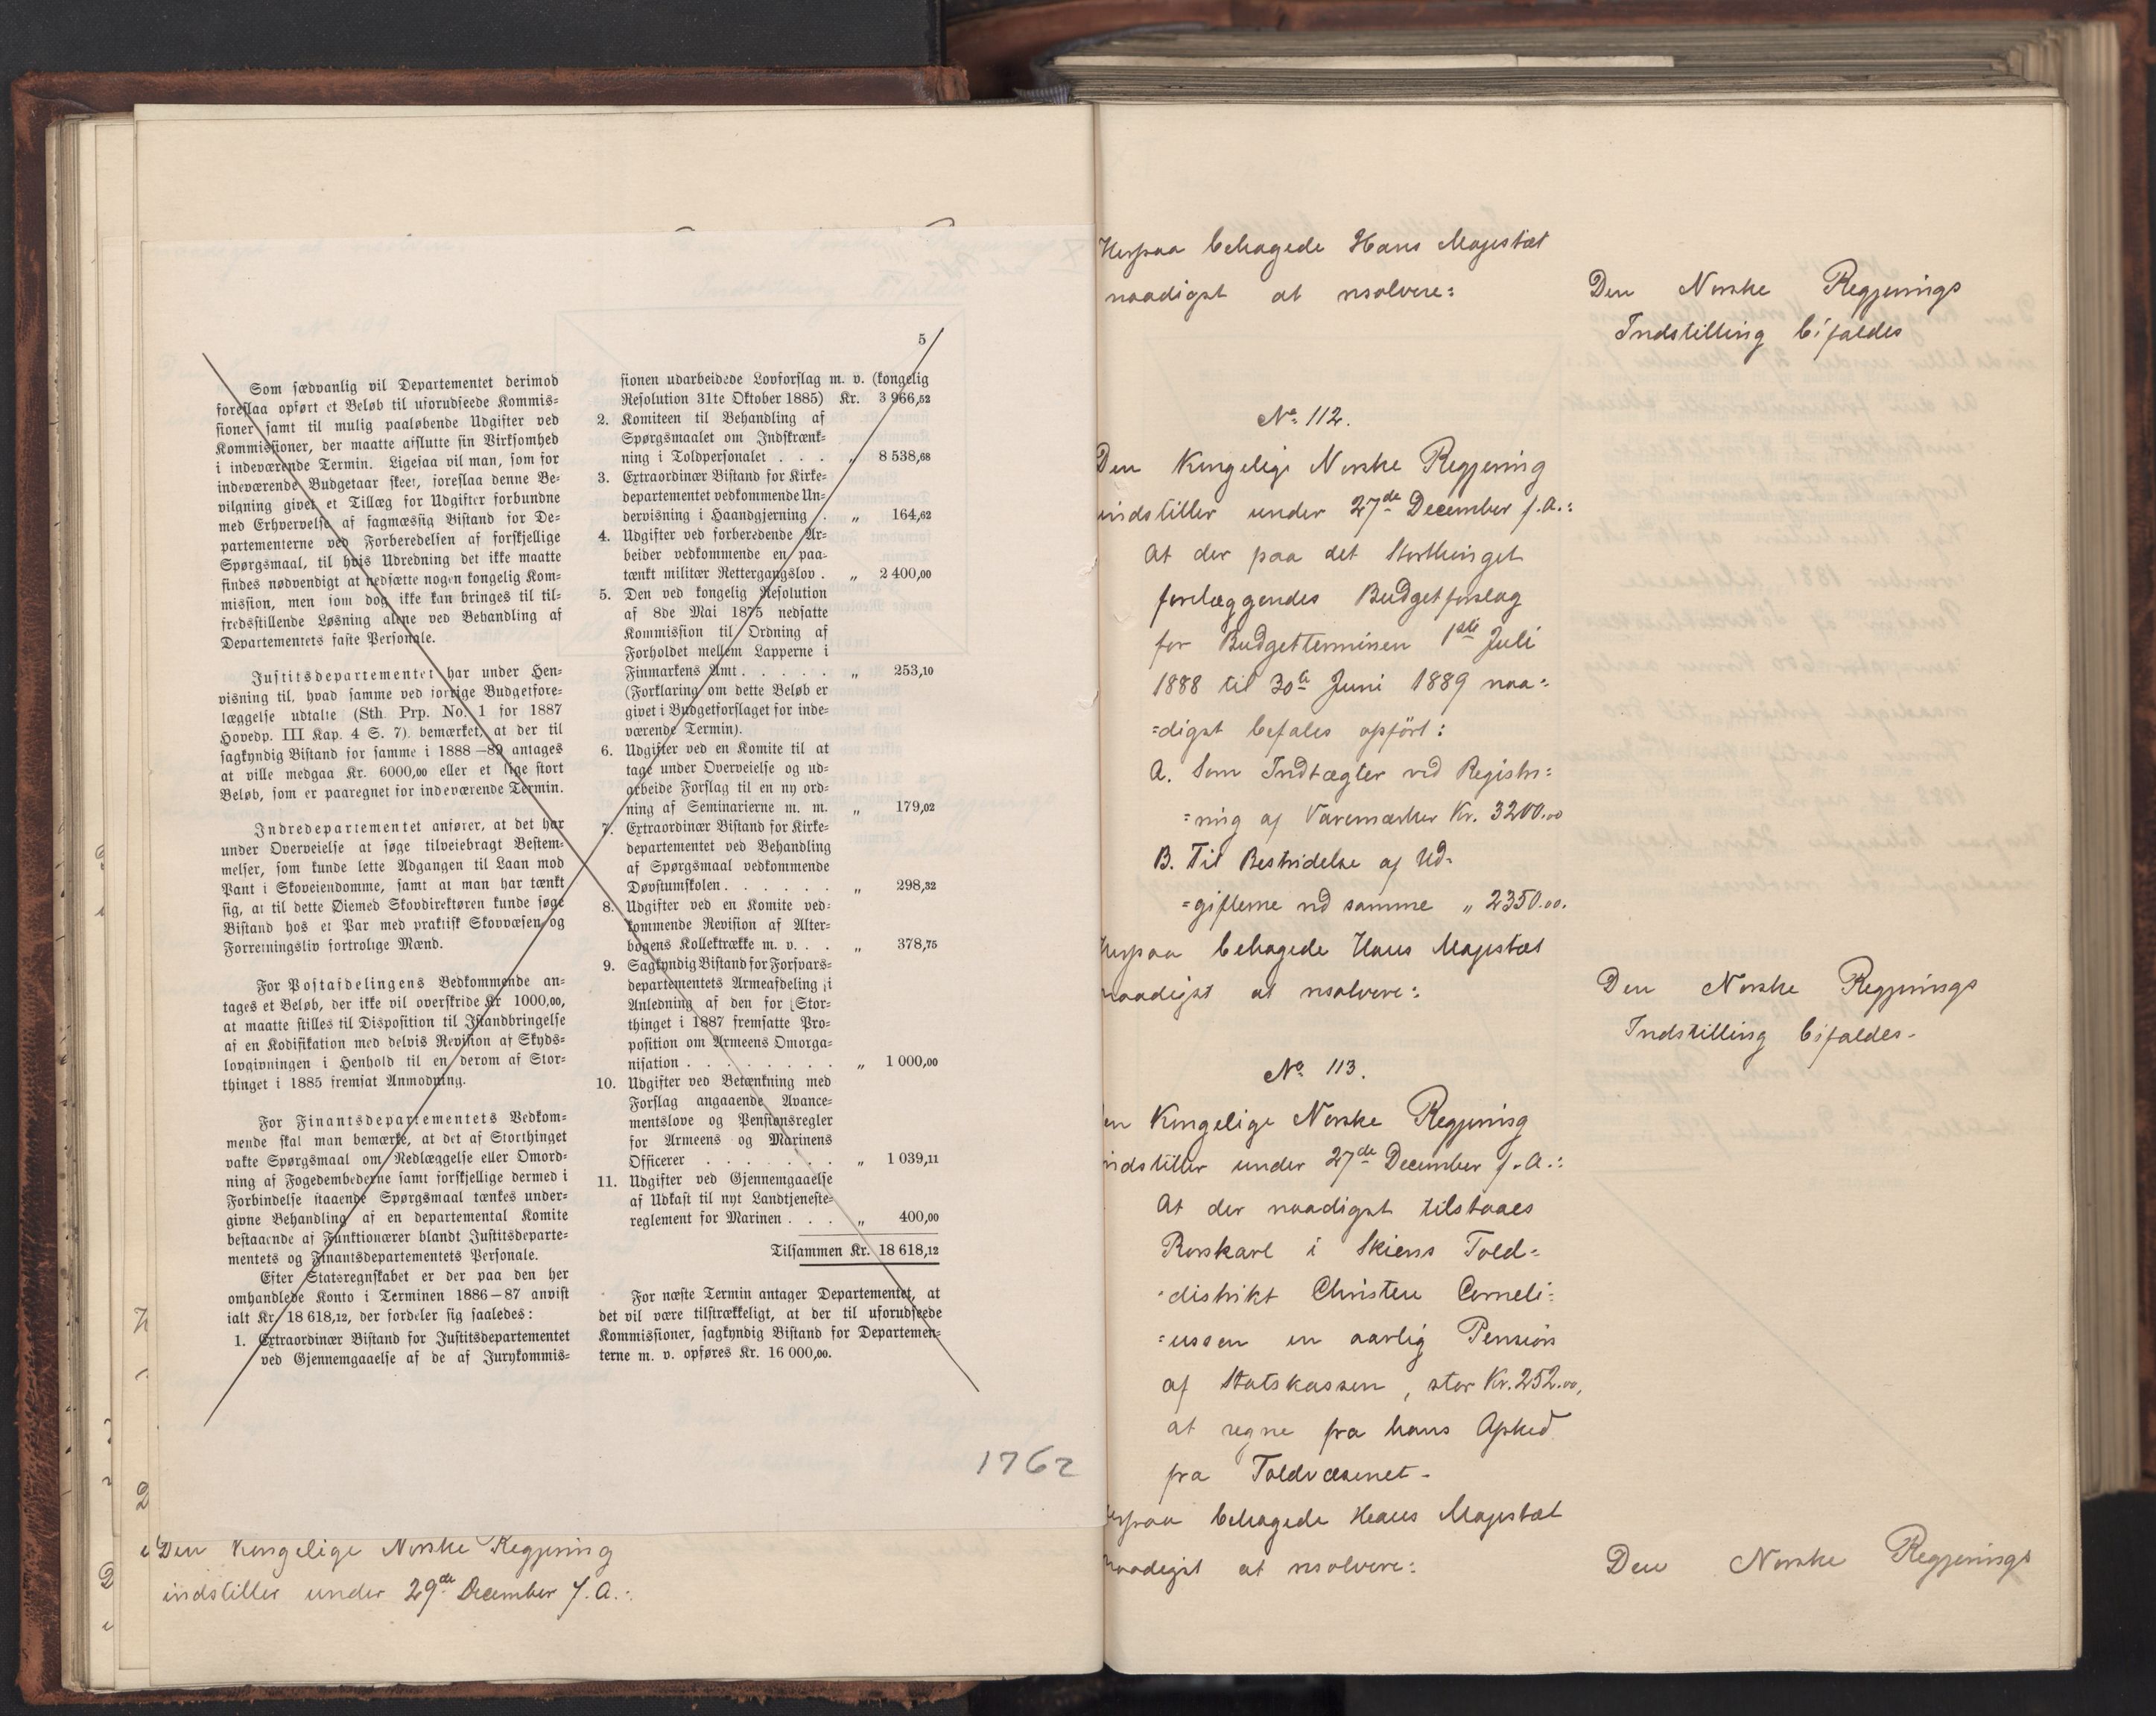 5
Som sædvanlig vil Departementet derimod
foreslaa opført et Beløb til uforudseede Kommis-
sioner samt til mulig paaløbende Udgifter ved
Kommissioner, der maatte afslutte sin Virksomhed
i indeværende Termin. Ligesaa vil man, som for
indeværende Budgetaar skeet, foreslaa denne Be-
vilgning givet et Tillæg for Udgifter forbundne
med Erhvervelse af fagmæssig Bistand for De-
partementerne ved Forberedelsen af forskjellige
Spørgsmaal, til hvis Udredning det ikke maatte
findes nødvendigt at nedsætte nogen kongelig Kom-
mission, men som dog ikke kan bringes til til-
fredsstillende Løsning alene ved Behandling af
Departementets faste Personale.
Justitsdepartementet har under Hen-
visning til, hvad samme ved forrige Budgetfore-
læggelse udtalte (Sth. Prp. No. 1 for 1887
Hovedp. III Kap. 4 S. 7), bemærket, at der til
sagkyndig Bistand for samme i 1888—89 antages
at ville medgaa Kr. 6000,00 eller et lige stort
Beløb, som er paaregnet for indeværende Termin.
Indredepartementet anfører, at det har
under Overveielse at søge tilveiebragt Bestem-
melser, som kunde lette Adgangen til Laan mod
Pant i Skoveiendomme, samt at man har tænkt
sig, at til dette Øiemed Skovdirektøren kunde søge
Bistand hos et Par med praktisk Skovvæsen og
Forretningsliv fortrolige Mænd.
For Postafdelingens Vedkommende an-
tages et Beløb, der ikke vil overskride Kr 1000,00,
at maatte stilles til Disposition til Istandbringelse
af en Kodifikation med delvis Revision af Skyds-
lovgivningen i Henhold til en derom af Stor-
thinget i 1885 fremsat Anmodning.
For Finantsdepartementets Vedkom-
mende skal man bemærke, at det af Storthinget
vakte Spørgsmaal om Nedlæggelse eller Omord-
ning af Fogedembederne samt forskjellige dermed i
Forbindelse staaende Spørgsmaal tænkes under-
givne Behandling af en departemental Komite
bestaaende af Funktionærer blandt Justitsdeparte-
mentets og Finantsdepartementets Personale.
Efter Statsregnskabet er der paa den her
omhandlede Konto i Terminen 1886—87 anvist
ialt Kr. 18 618,12, der fordeler sig saaledes:
1. Extraordinær Bistand for Justitsdepartementet
ved Gjennemgaaelse af de af Jurykommis-
sionen udarbeidede Lovforslag m. v. (kongelig
Resolution 31te Oktober 1885) Kr. 3 966,52
2. Komiteen til Behandling af
Spørgsmaalet om Indskrænk-
ning i Toldpersonalet . . . „ 8 538,68
3. Extraordinær Bistand for Kirke-
departementet vedkommende Un-
dervisning i Haandgjerning . „ 164,62
4. Udgifter ved forberedende Ar-
beider vedkommende en paa-
tænkt militær Rettergangslov . „ 2 400,00
5. Den ved kongelig Resolution
af 8de Mai 1875 nedsatte
Kommission til Ordning af
Forholdet mellem Lapperne i
Finmarkens Amt . . . . . „ 253,10
(Forklaring om dette Beløb er
givet i Budgetforslaget for inde-
værende Termin).
6. Udgifter ved en Komite til at
tage under Overveielse og ud-
arbeide Forslag til en ny ord-
ning af Seminarierne m. m. „ 179,02
7. Extraordinær Bistand for Kirke-
departementet ved Behandling
af Spørgsmaal vedkommende
Døvstumskolen . . . . . . „ 298,32
8. Udgifter ved en Komite ved-
kommende Revision af Alter-
bogens Kollektrække m. v. . . „ 378,75
9. Sagkyndig Bistand for Forsvars-
departementets Armeafdeling i
Anledning af den for Stor-
thinget i 1887 fremsatte Pro-
position om Armeens Omorga-
nisation . . . . . . . . „ 1 000,00
10. Udgifter ved Betænkning med
Forslag angaaende Avance-
mentslove og Pensionsregler
for Armeens og Marinens
Officerer . . . . . . . „ 1 039,11
11. Udgifter ved Gjennemgaaelse
af Udkast til nyt Landtjeneste-
reglement for Marinen . . . „ 400,00
Tilsammen Kr. 18 618,12
For næste Termin antager Departementet, at
det vil være tilstrækkeligt, at der til uforudseede
Kommissioner, sagkyndig Bistand for Departemen-
terne m. v. opføres Kr. 16 000,00.
1762
Den Kongelige Norske Regjering
indstiller under 29de December f. A.:
Herpaa behagede Hans Majestæt
naadigst at resolvere:
Den Norske Regjerings
Indstilling bifaldes
No. 112.
Den Kongelige Norske Regjering
indstiller under 27de December f. A.:
At der paa det Storthinget
forelæggendes Budgetforslag
for Budgetterminen 1ste Juli
1888 til 30te Juni 1889 naa=
=digst befales opført:
A. Som Indtægter ved Registre=
=ring af Varemærker Kr. 3200.00
B. Til Bestridelse af Ud=
=gifterne ved samme „ 2350.00.
Herpaa behagede Hans Majestæt
naadigst at resolvere:
Den Norske Regjerings
Indstilling bifaldes.
No. 113.
Den Kongelige Norske Regjering
indstiller under 27de December f. A.:
At der naadigst tilstaaes
Rorskarl i Skiens Told=
=distrikt Christen Corneli=
=ussen en aarlig Pension
af Statskassen, stor Kr. 252.00,
at regne fra hans Afsked
fra Toldvæsenet.
Herpaa behagede Hans Majestæt
naadigst at resolvere:
Den Norske Regjerings